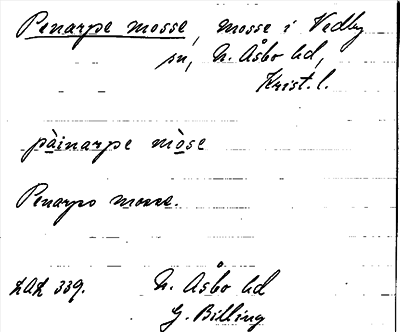 Penarpe mosse, mosse i Vedby
sn, N. Åsbo hd,
Krist. l.
pàinarpe mòse
Penarps mosse.
LAL 339.
N. Åsbo hd
G. Billing